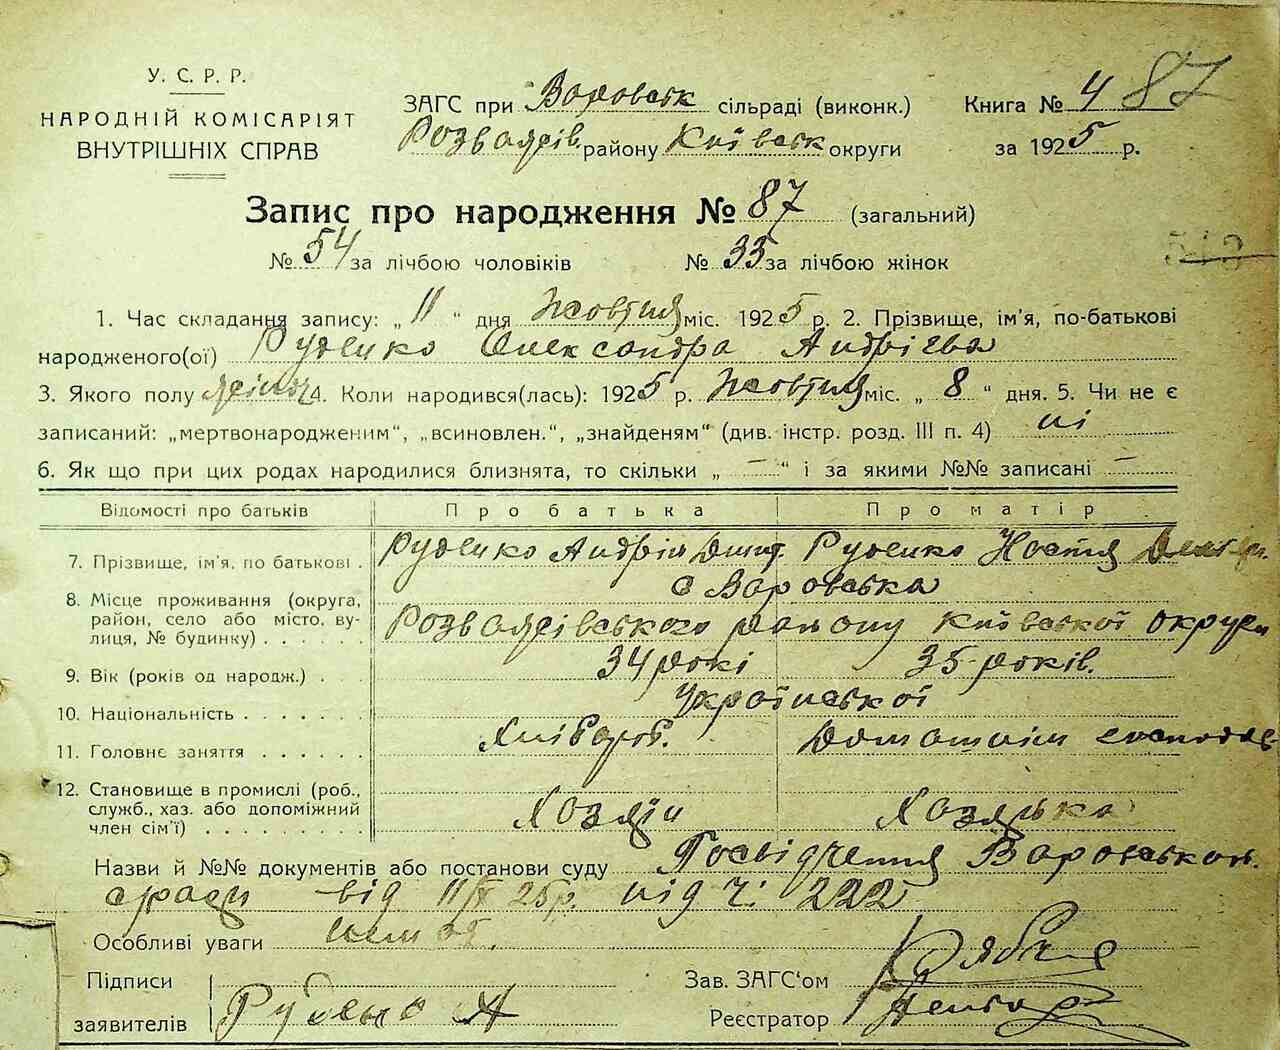 У. С. Р. Р.
НАРОДНІЙ КОМІСАРІЯТ
ВНУТРІШНІХ СПРАВ
ЗАГС при Воровськ сільраді (виконк.)
Розважів. району Київськ округи
Книга № 4 87
за 1925 р.
Запис про народження № 87 (загальний)
№ 54 за лічбою чоловіків № 33 за лічбою жінок
1. Час складання запису: „ 11 “ дня Жовтня міс. 1925 р. 2. Прізвище, ім'я, по-батькові
народженого(ої) Руденко Олександра Андрієва
3. Якого полу жіноч 4. Коли народився(лась): 1925 р. Жовтня міс. „ 8 “ дня. 5. Чи не є
записаний: „мертвонародженим“, „всиновлен.“, „знайденям“ (див. інстр. розд. III п. 4) ні
6. Як що при цих родах народилися близнята, то скільки „ — “ і за якими №№ записані —
Відомості про батьків Про батька Про матір
7. Прізвище, ім'я, по батькові . Руденко Андрій Дмит. Руденко Настя
8. Місце проживання (округа, с Воровська
район, село або місто, ву-
лиця, № будинку) . . . . Розважівського району Київської округи
9. Вік (років од народж.) . 34 рокі 35 років.
10. Національність . . . . . . . Української
11. Головне заняття . . . . . . Хлібороб. Домашнім господар
12. Становище в промислі (роб.,
служб., хаз. або допоміжний
член сім'ї) . . . . . . . . . Хозяїн Хозяька
Назви й №№ документів або постанови суду Посвідчення Воровськой
сради від 11/X 25р. під ч: 222
Особливі уваги
Підписи
заявителів Руденко А
Зав. ЗАГС‘ом
Реєстратор